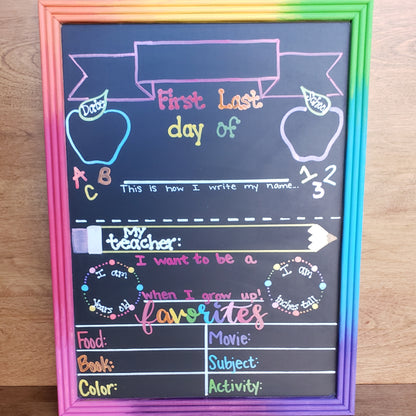 First Last
day of
Date
A B C
1 2 3
This is how I write my name...
My
teacher:
I want to be a
I am
years old
I am
inches tall
when I grow up!
favorites
Food:
Movie:
Book:
Subject:
Color:
Activity: